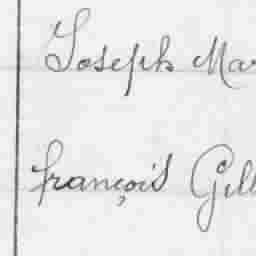 Joseph Mar
françois Gill